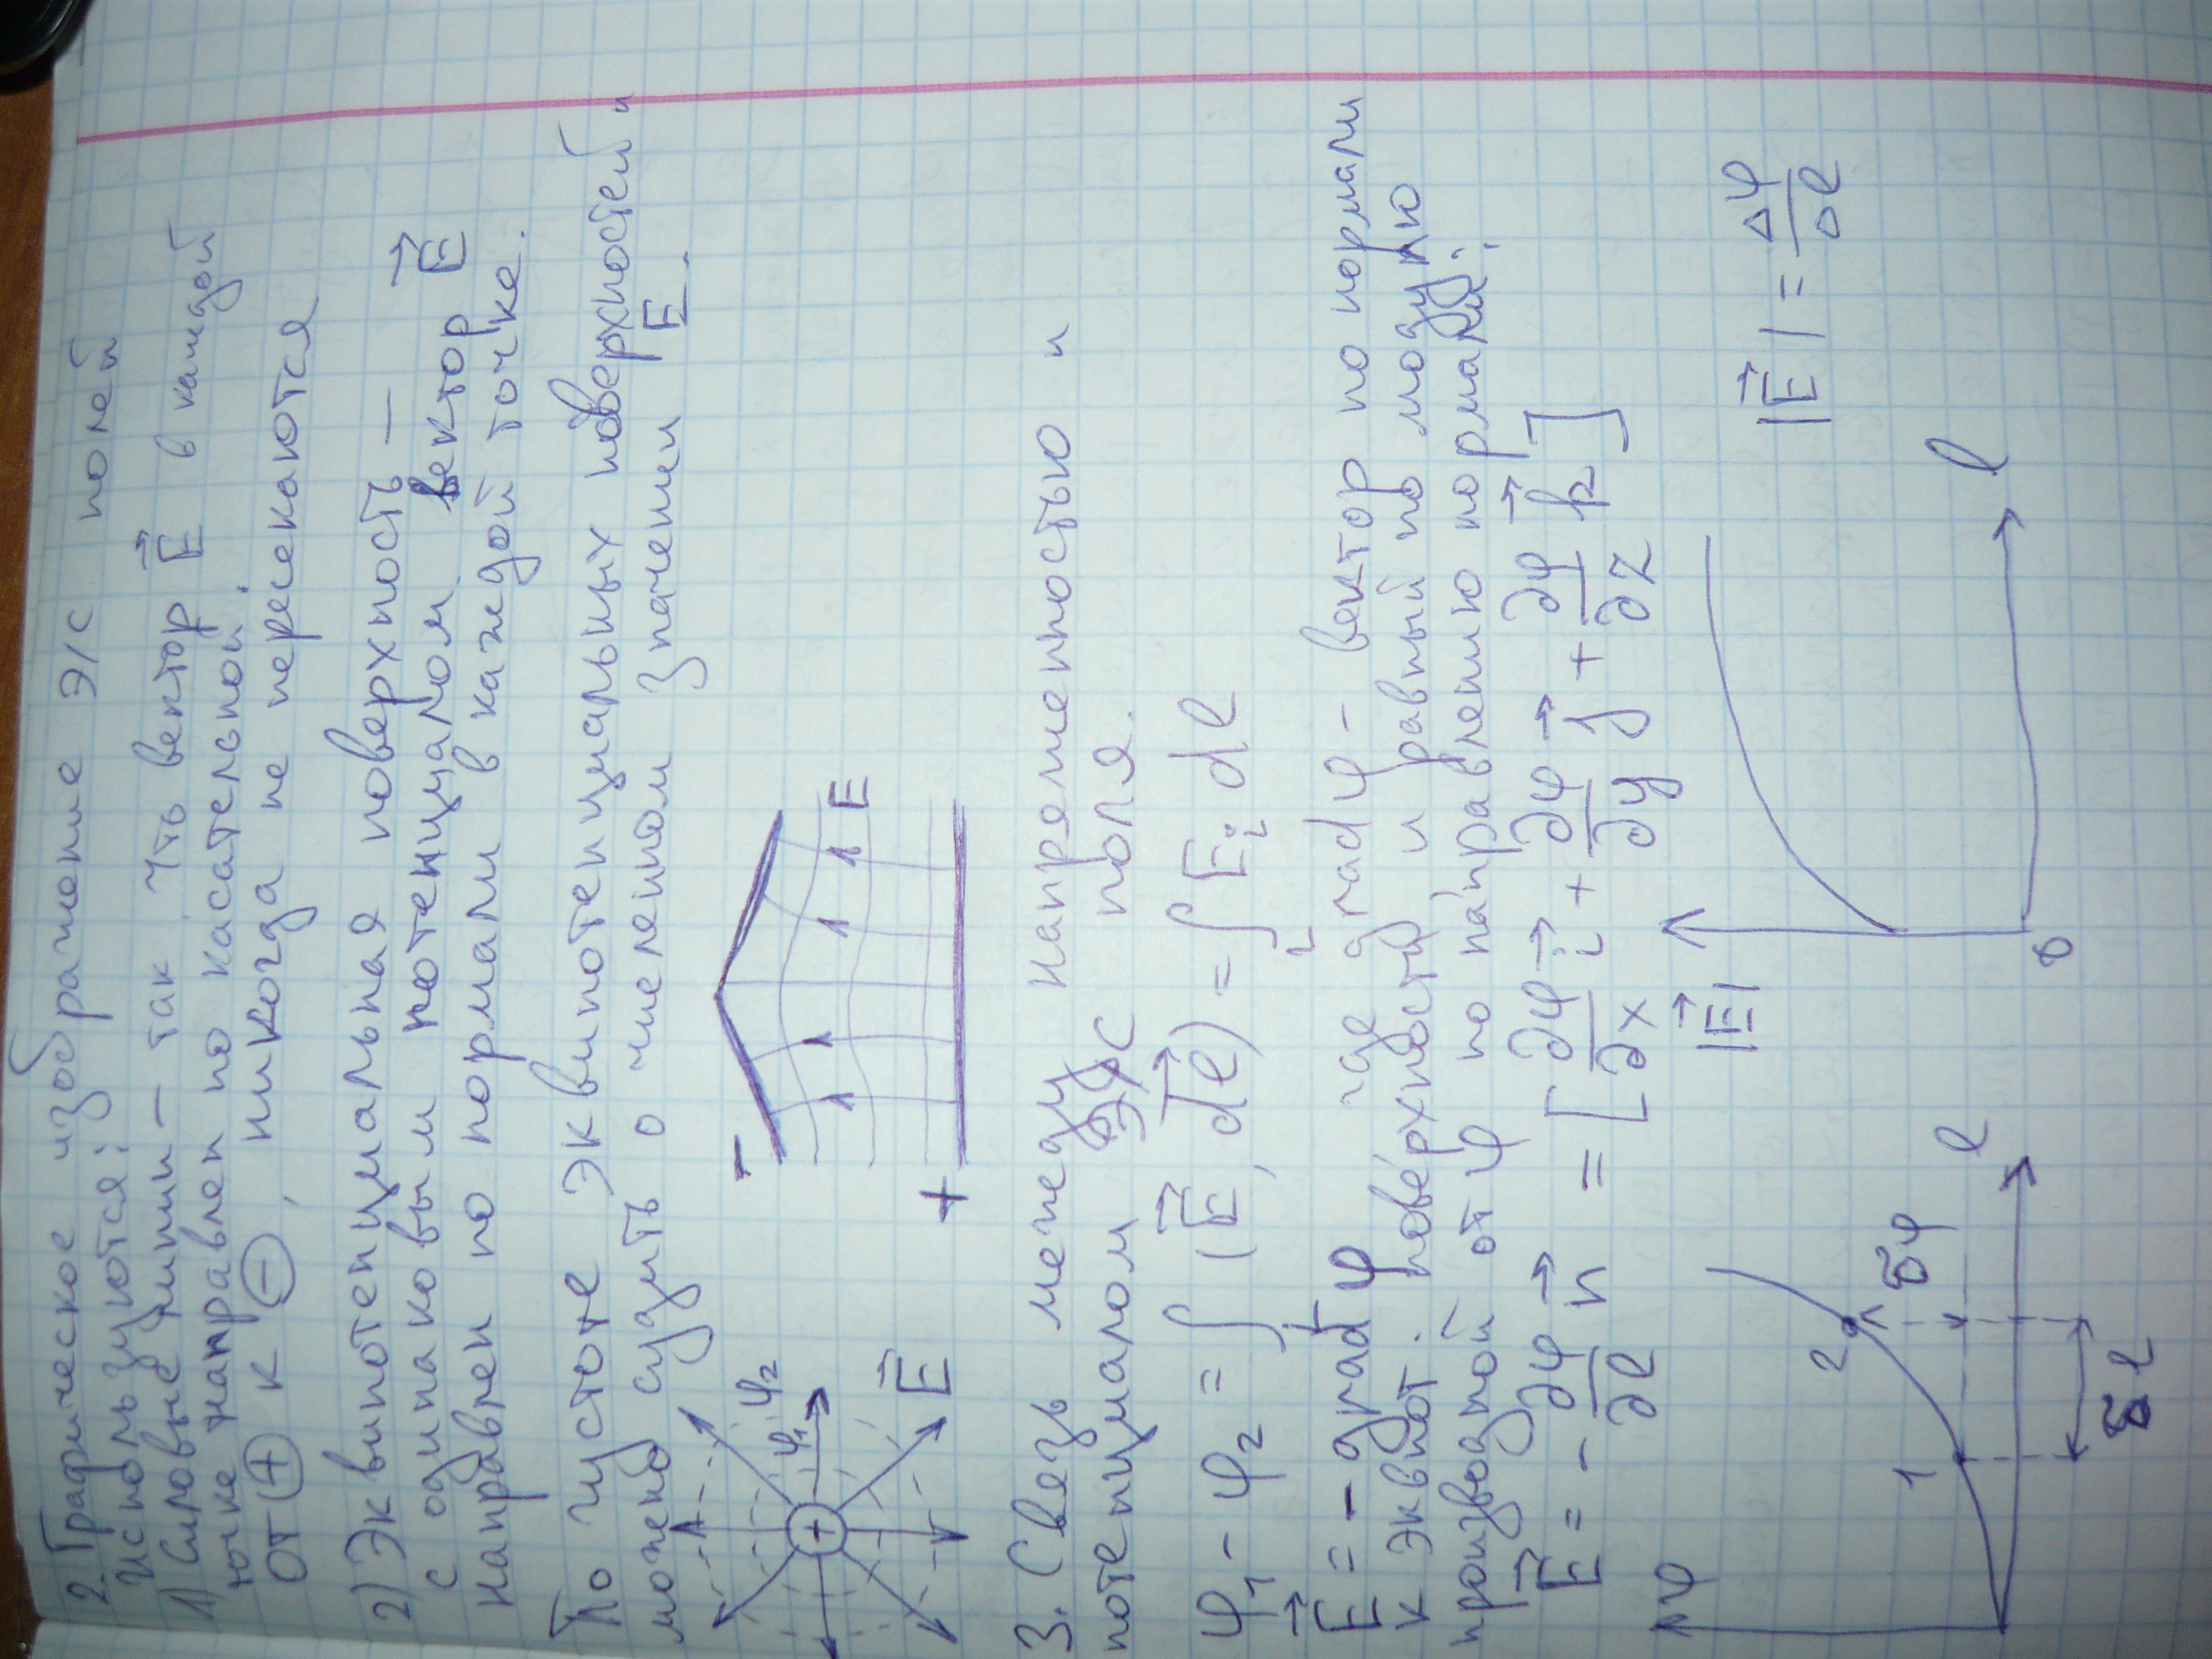 2. Графическое изображение Э/С полей
Используются:
1) Силовые линии – так, что вектор E⃗ в каждой
точке направлен по касательной.
от ⊕ к ⊖, никогда не пересекаются
2) Эквипотенциальная поверхность –
с одинаковым потенциалом. Вектор E⃗
направлен по нормали в каждой точке.
По густоте эквипотенциальных поверхностей
можно судить о численном значении E.
φ₁ φ₂
+
E⃗
–
E
+
3. Связь между напряженностью и
потенциалом Э/С поля.
φ₁ – φ₂ = ∫_L (E⃗, dl⃗) = ∫_L E_i dl
E⃗ = – grad φ, где grad φ – вектор по нормали
к эквпот. поверхности, и равный по модулю
производной от φ по направлению нормали:
E⃗ = – ∂φ/∂l n⃗ = [∂φ/∂x i⃗ + ∂φ/∂y j⃗ + ∂φ/∂z k⃗]
φ
1
2
δφ
l
δl
|E⃗|
0
l
|E⃗| = Δφ/Δl